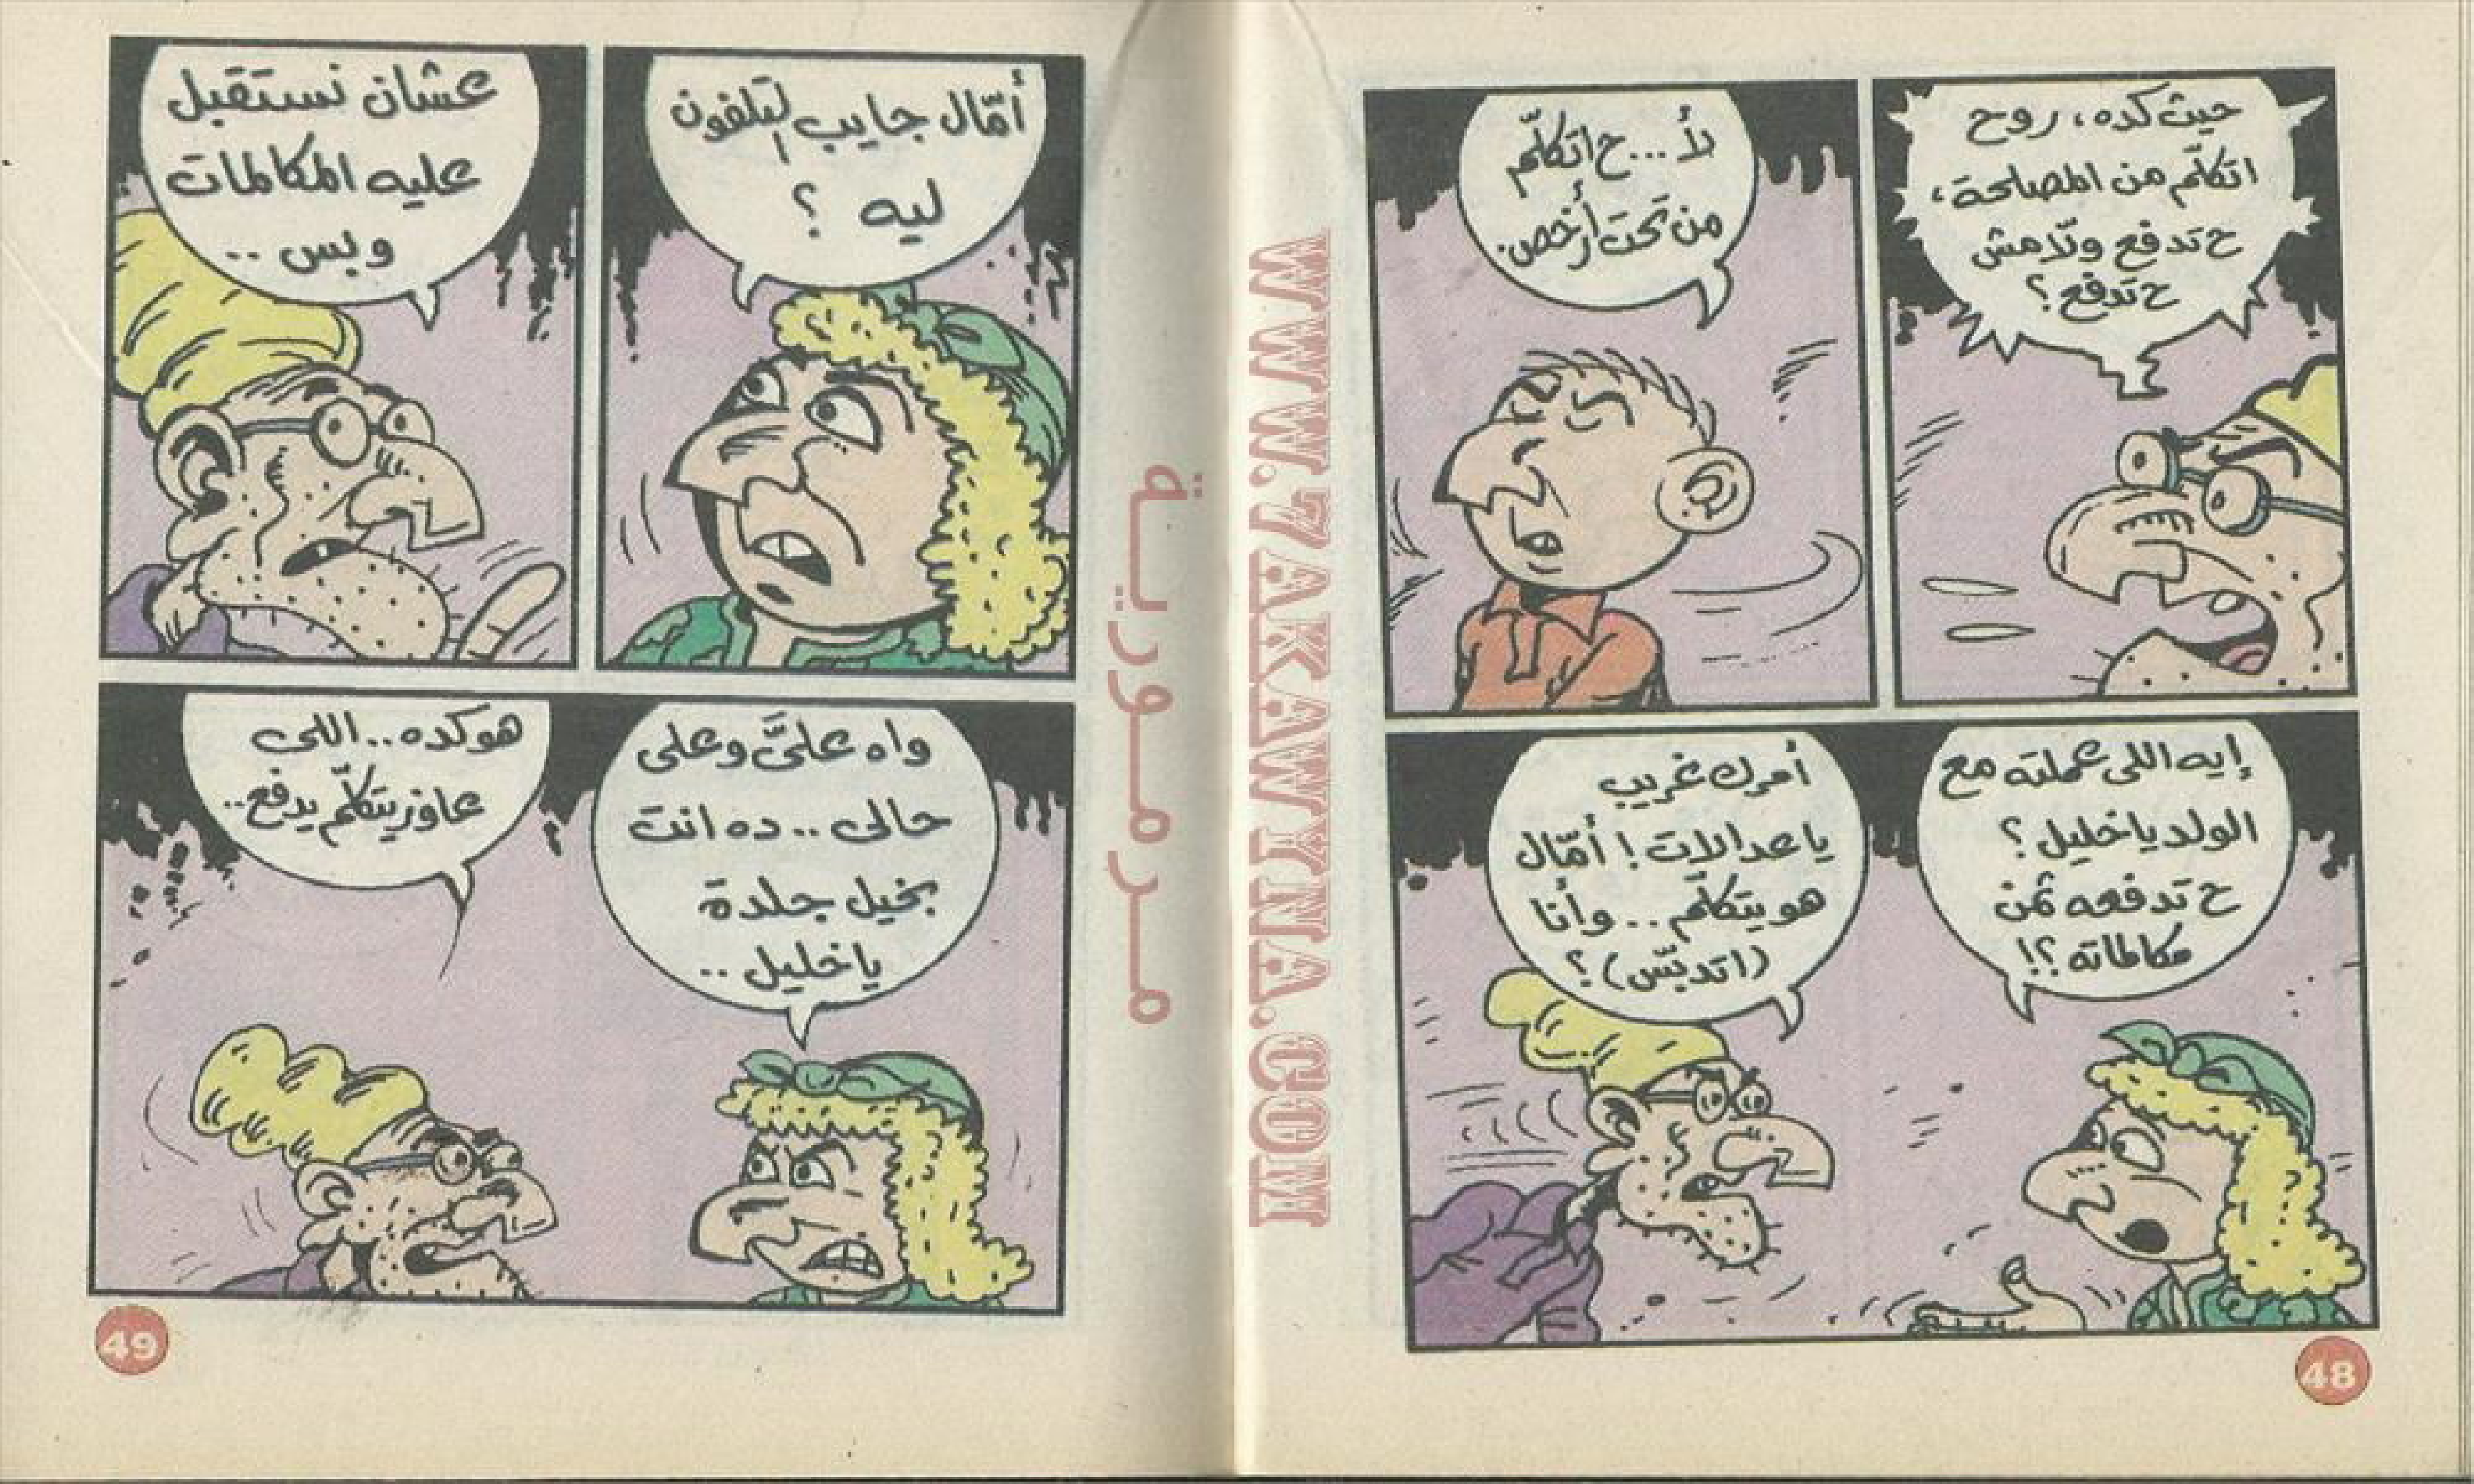 حيث كده، روح
اتكلّم من المصلحة،
ح تدفع ولّا مش
ح تدفع؟
لأ...ح اتكلّم
من تحت أرخص.
إيه اللى عملته مع
الولد يا خليل؟
ح تدفعه ثمن
مكالماته؟!
أمرك غريب
يا عدالات! أمّال
هو يتكلّم.. وأنا
(اتدبّس)؟
48
WWW.7AKAWINA.COM
مرمورية
أمّال جايب التلفون
ليه ؟
عشان نستقبل
عليه المكالمات
وبس ..
واه علىَّ وعلى
حالى .. ده انت
بخيل جلدة
يا خليل ..
هو كده.. اللى
عاوز يتكلّم يدفع..
49